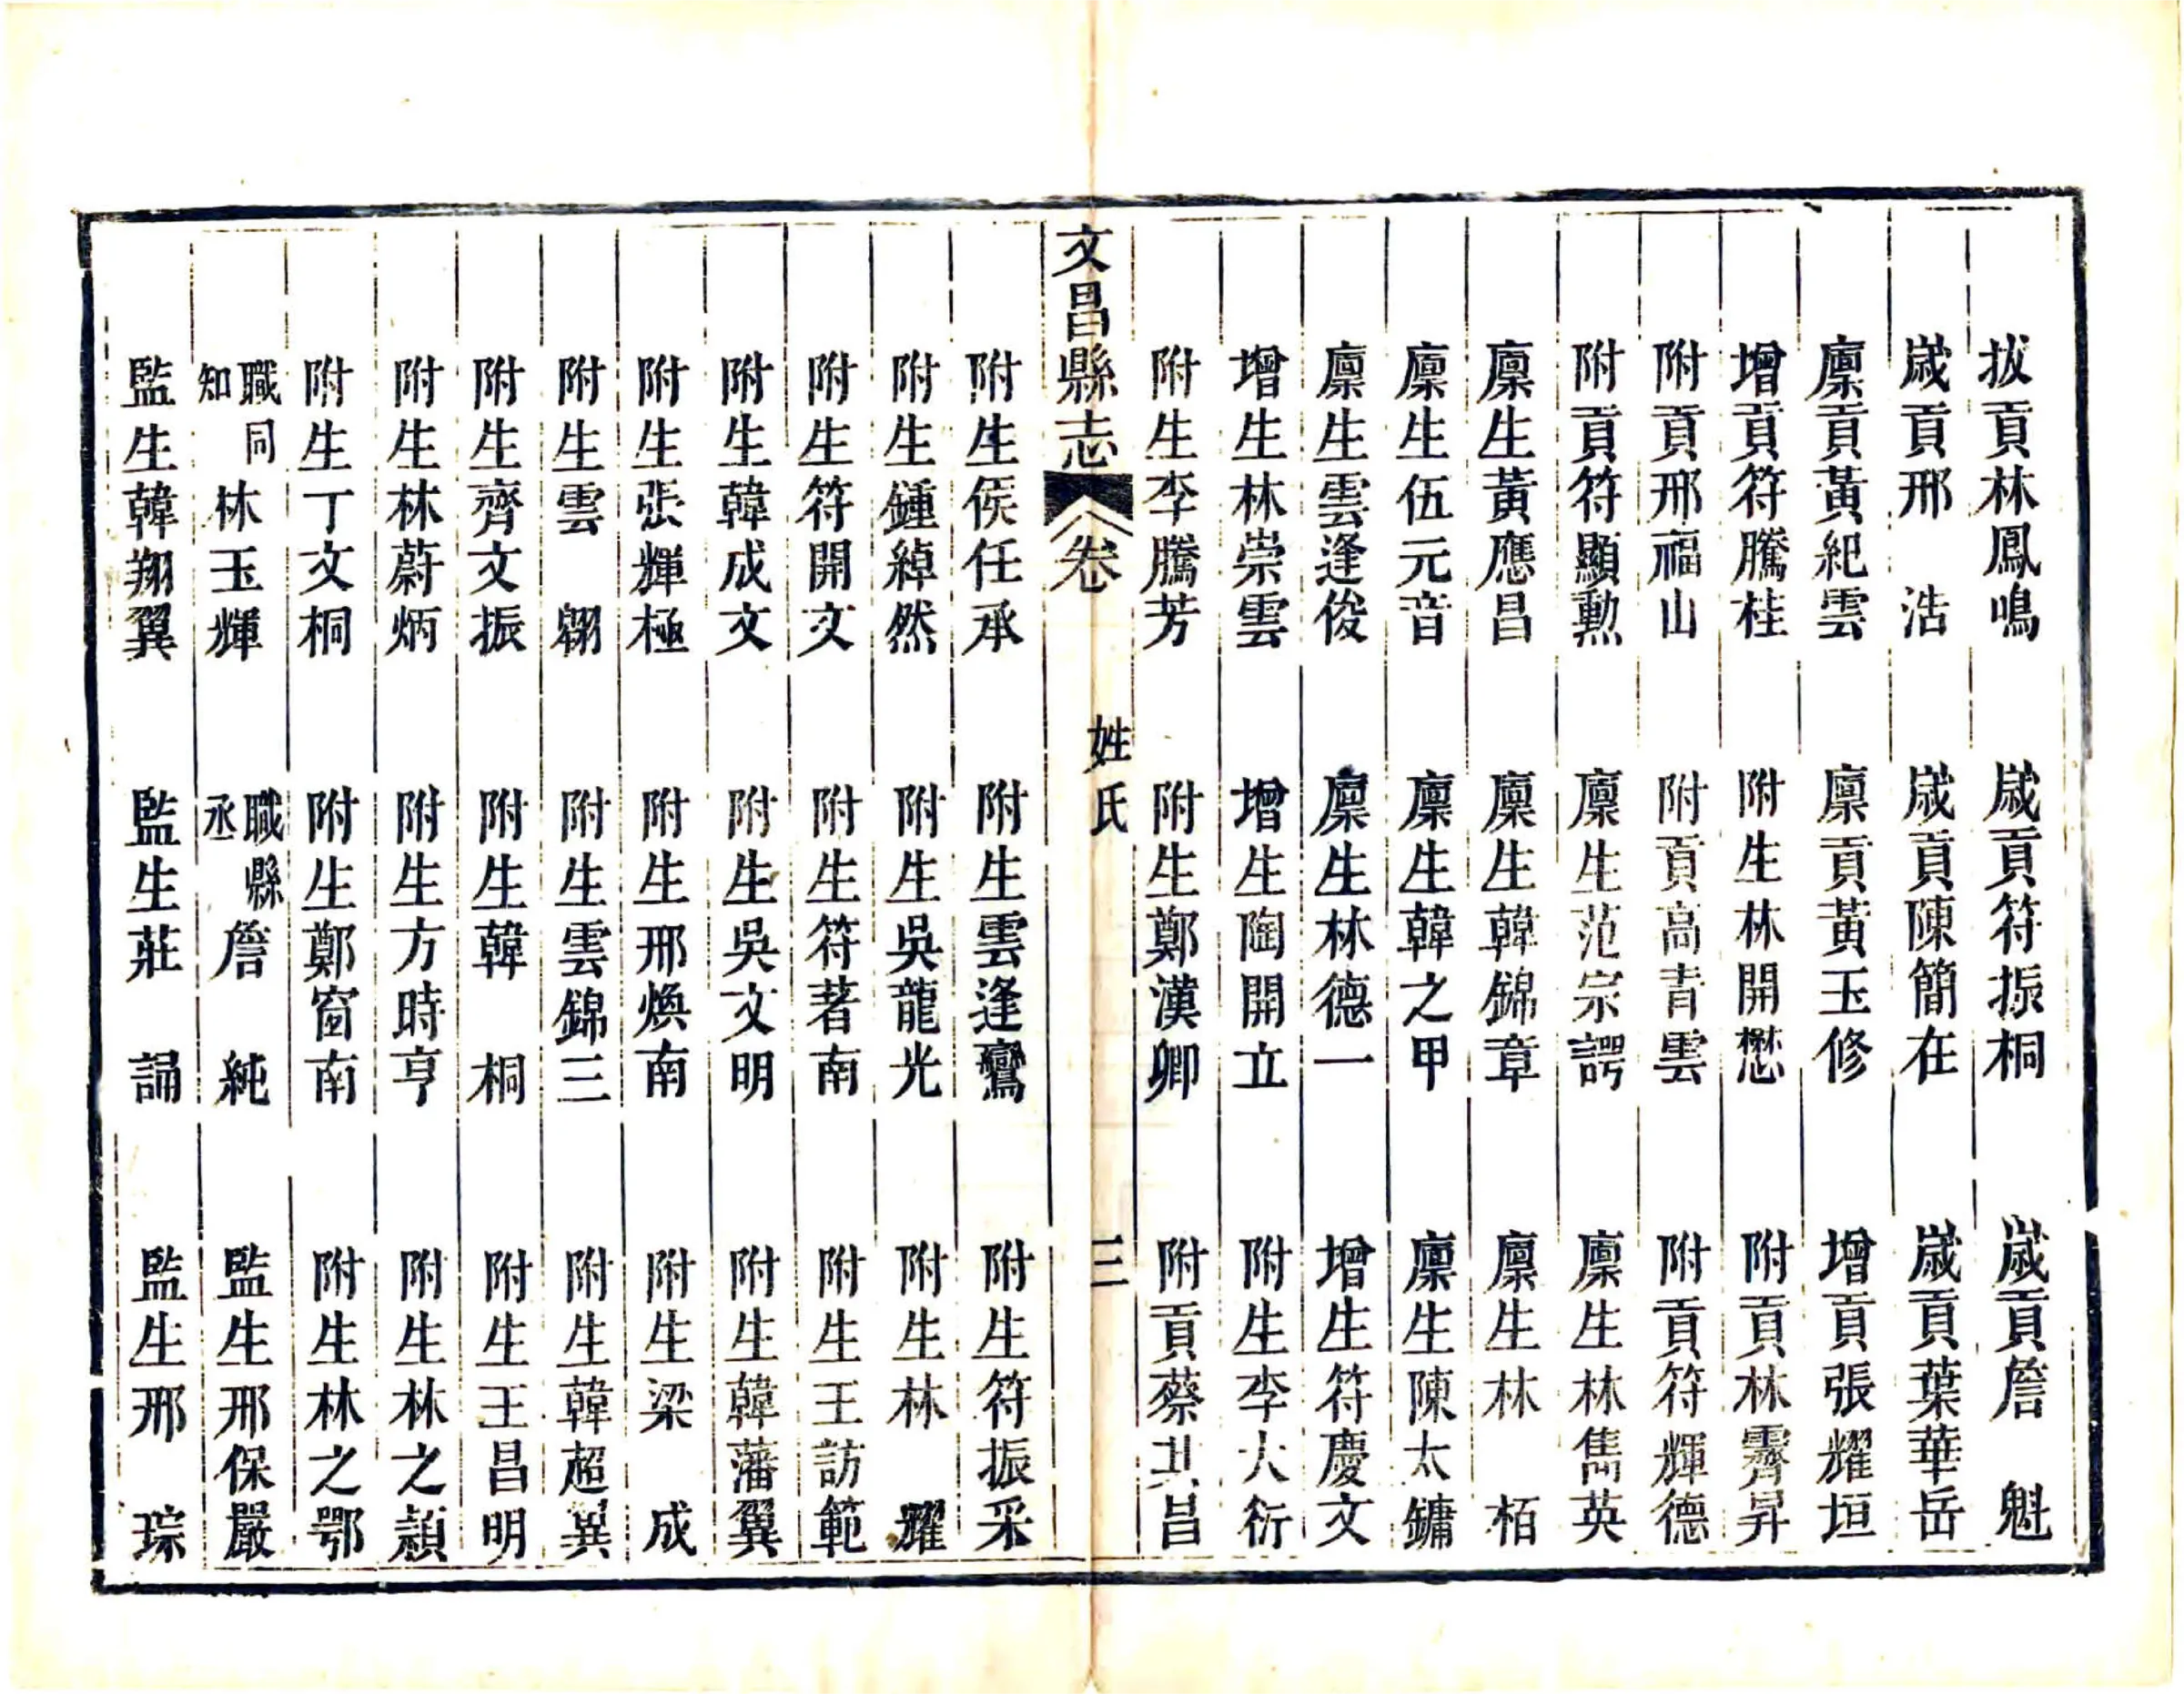 拔貢林鳳鳴 歲貢符振桐 歲貢詹魁
歲貢邢浩 歲貢陳簡在 歲貢葉華岳
廩貢黃紀雲 廩貢黃玉修 增貢張耀垣
增貢符騰桂 附生林開懋 附貢林霽昇
附貢邢福山 附貢高青雲 附貢符輝德
附貢符顯勲 廩生范宗諤 廩生林雋英
廩生黃應昌 廩生韓錦章 廩生林栢
廩生伍元音 廩生韓之甲 廩生陳太鏞
廩生雲逢俊 廩生林德一 增生符慶文
增生林崇雲 增生陶開立 附生李大衍
附生李騰芳 附生鄭漢卿 附貢蔡其昌
文昌縣志 卷 姓氏 三
附生侯任承 附生雲逢鸞 附生符振采
附生鍾綽然 附生吳龍光 附生林耀
附生符開文 附生符著南 附生王訪範
附生韓成文 附生吳文明 附生韓藩翼
附生張輝極 附生邢煥南 附生梁成
附生雲翱 附生雲錦三 附生韓超翼
附生齊文振 附生韓桐 附生王昌明
附生林蔚炳 附生方時亨 附生林之穎
附生丁文桐 附生鄭窗南 附生林之鄂
職同知林玉輝 職縣丞詹純 監生邢保嚴
監生韓翔翼 監生莊誦 監生邢琮